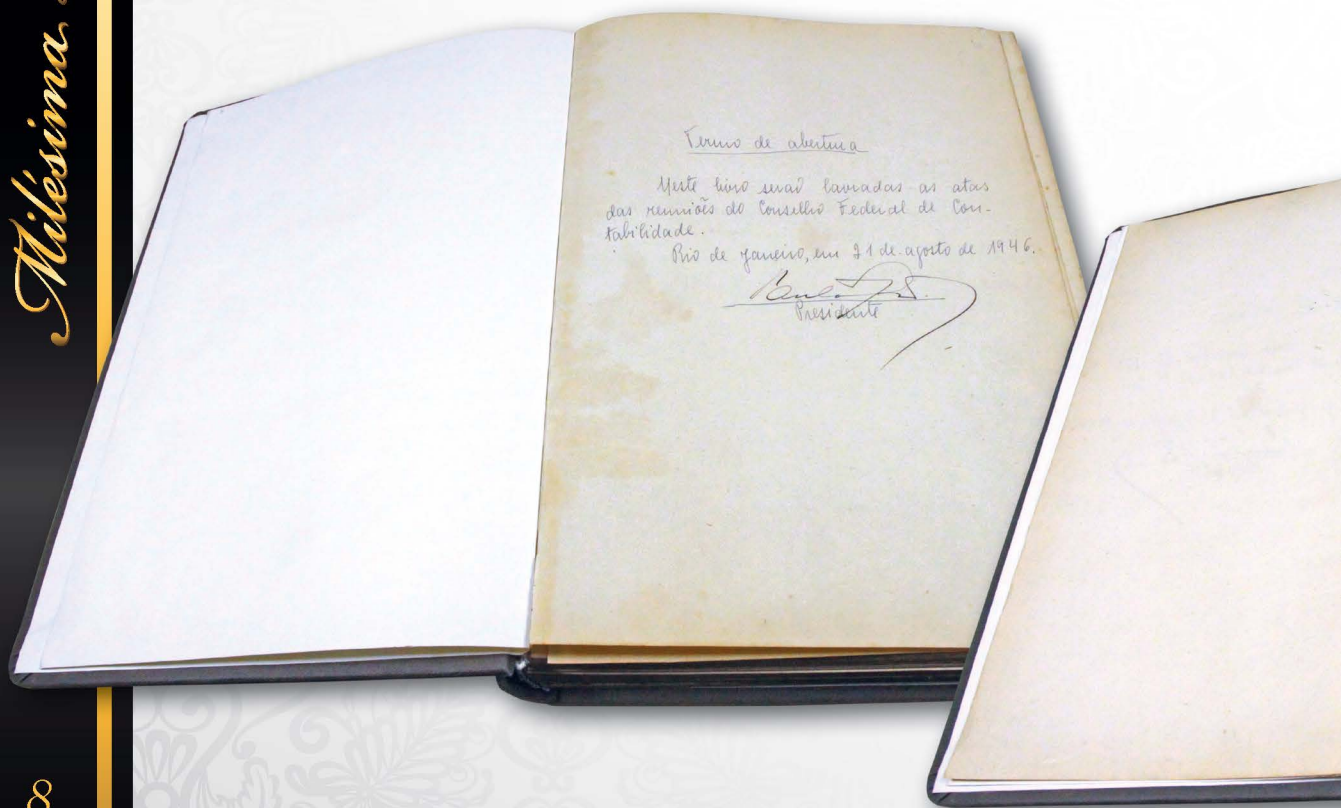 Milésima
Termo de abertura
Neste livro serão lavradas as atas
das reuniões do Conselho Federal de Con-
tabilidade.
Rio de Janeiro, em 21 de agosto de 1946.
Presidente
8